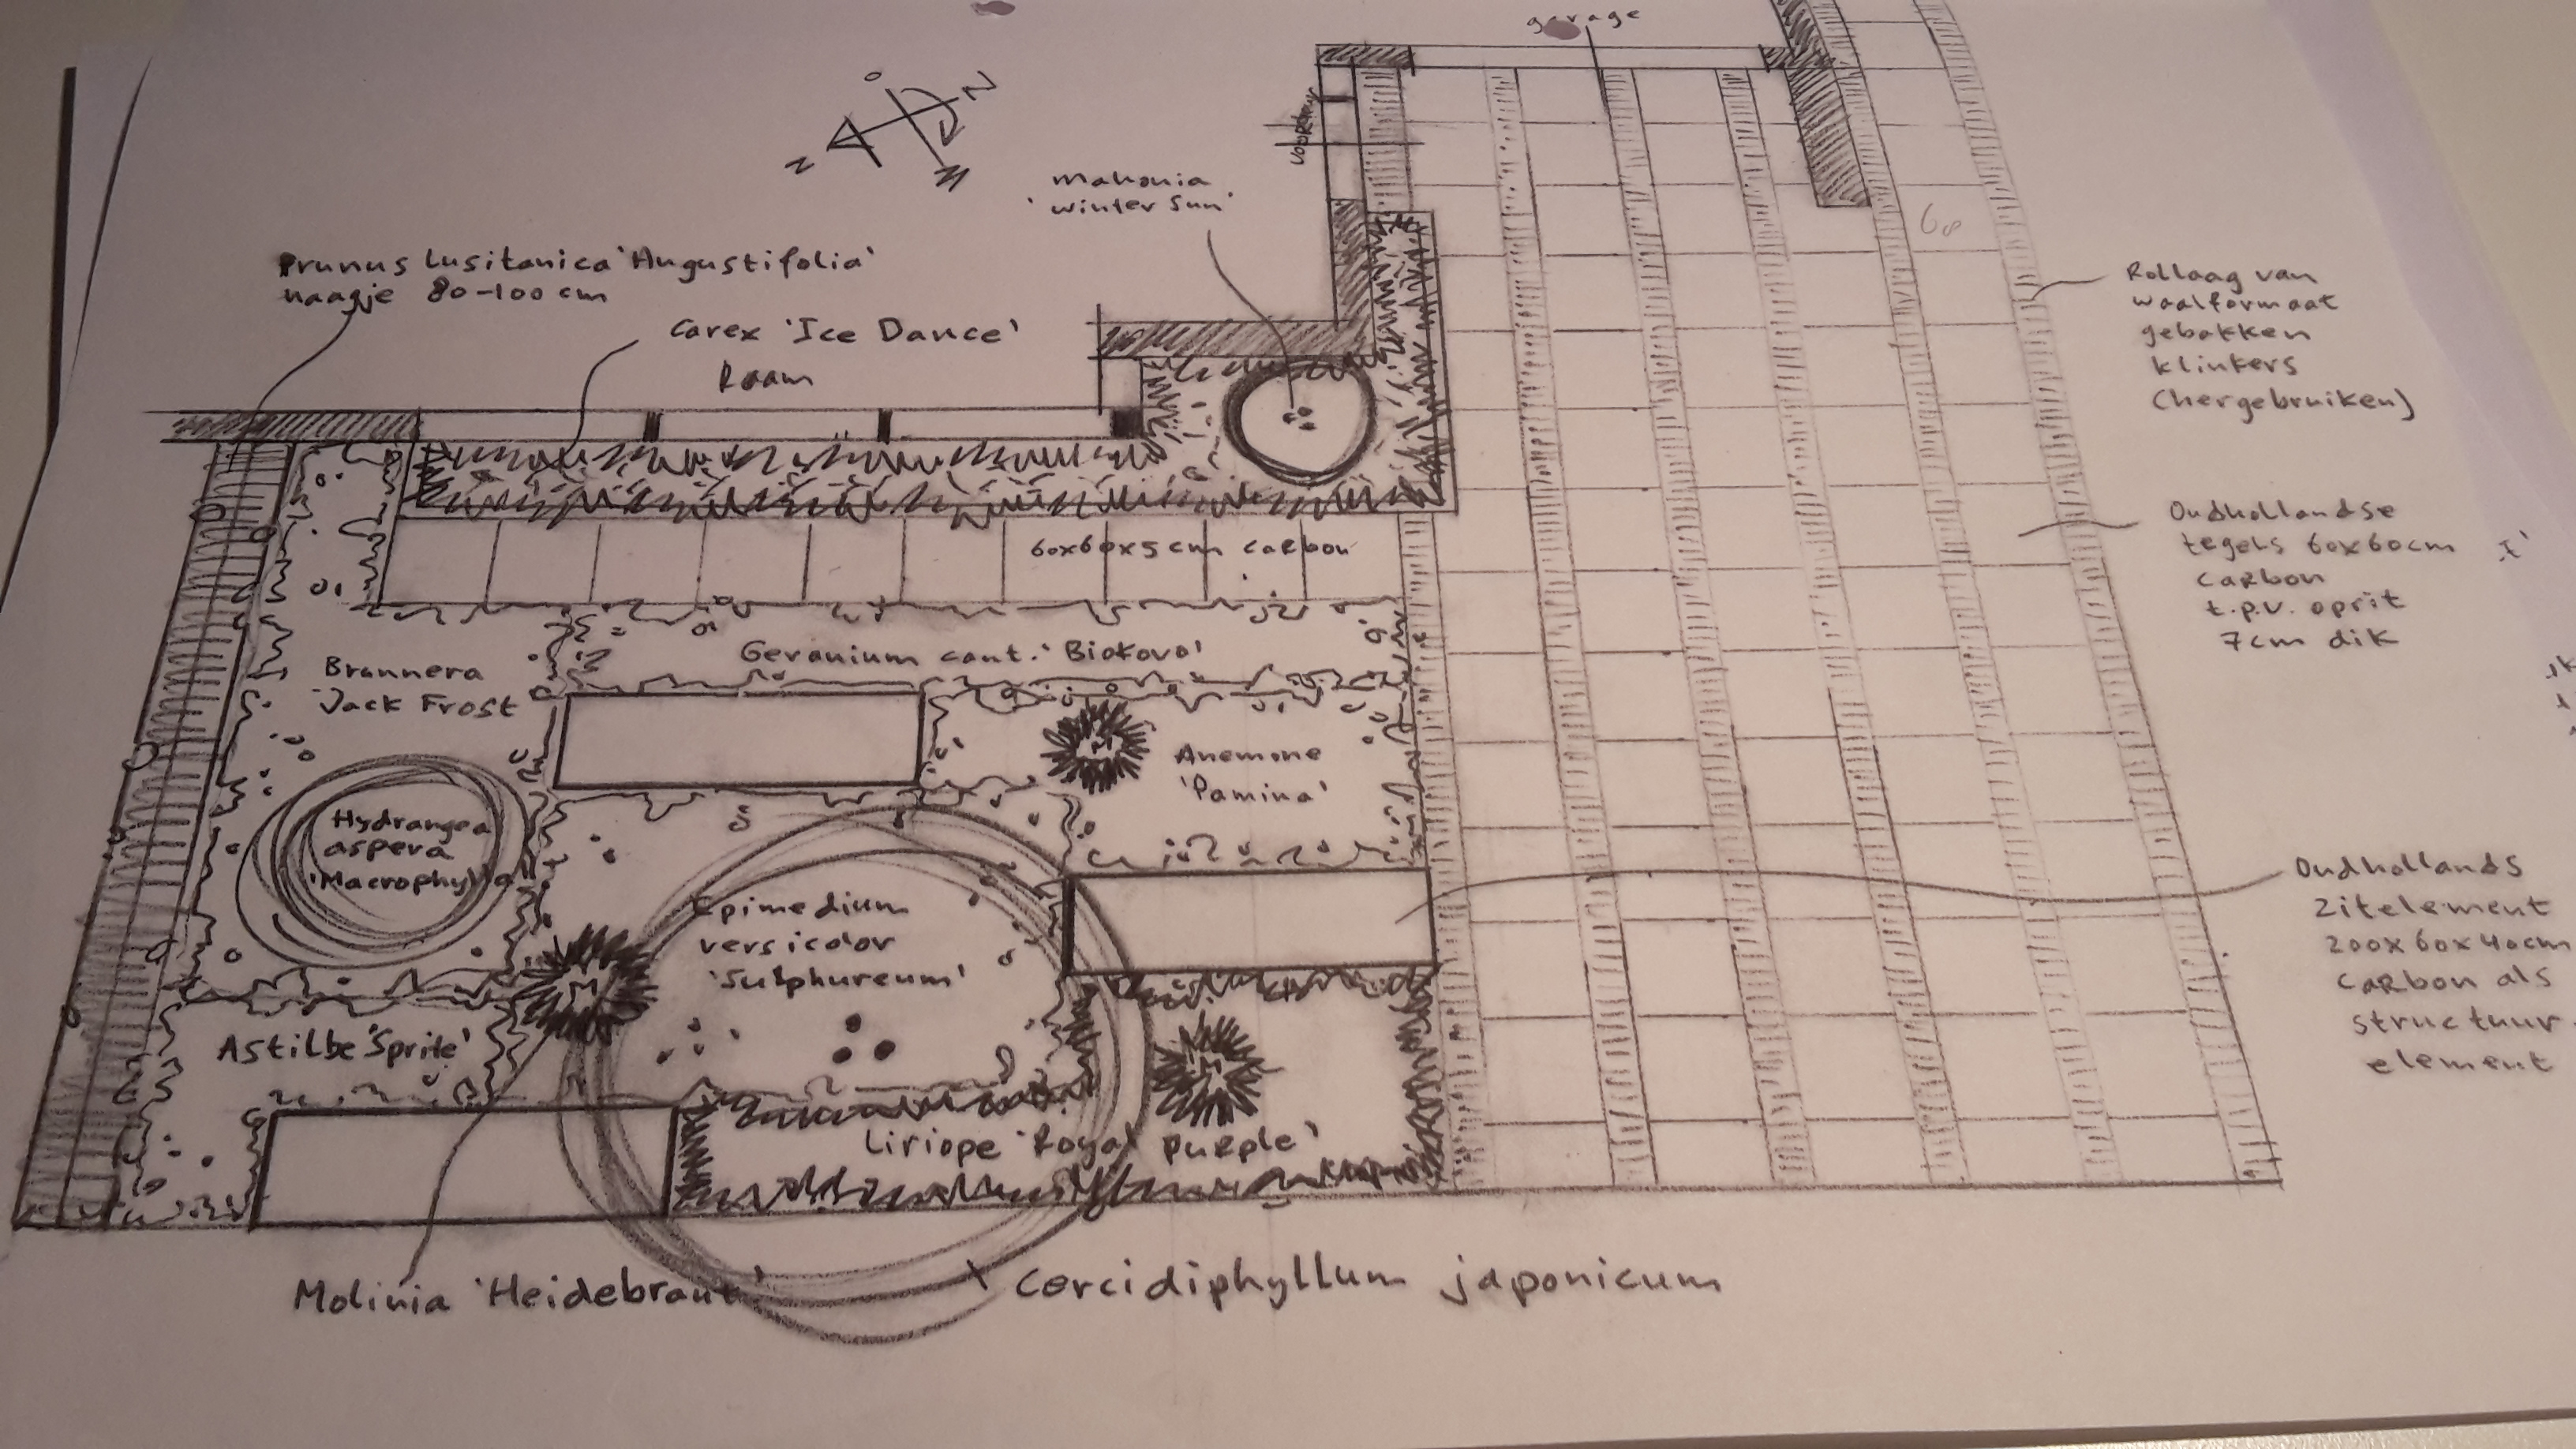 garage
voordeur
O
N
Z
W
Mahonia
'Winter Sun'
Prunus Lusitanica 'Angustifolia'
haagje 80-100 cm
Carex 'Ice Dance'
Raam
60
Rollaag van
waalformaat
gebakken
klinkers
(hergebruiken)
60x60x5 cm carbon
Oudhollandse
tegels 60x60cm
carbon
t.p.v. oprit
7cm dik
Geranium cant. 'Biokovo'
Brunnera
'Jack Frost'
M
Anemone
'Pamina'
Hydrangea
aspera
'Macrophylla'
Epimedium
versicolor
'Sulphureum'
Oudhollands
zitelement
200x60x40cm
carbon als
structuur
element
M
Astilbe 'Sprite'
M
Liriope 'Royal Purple'
Molinia 'Heidebraut'
Cercidiphyllum japonicum